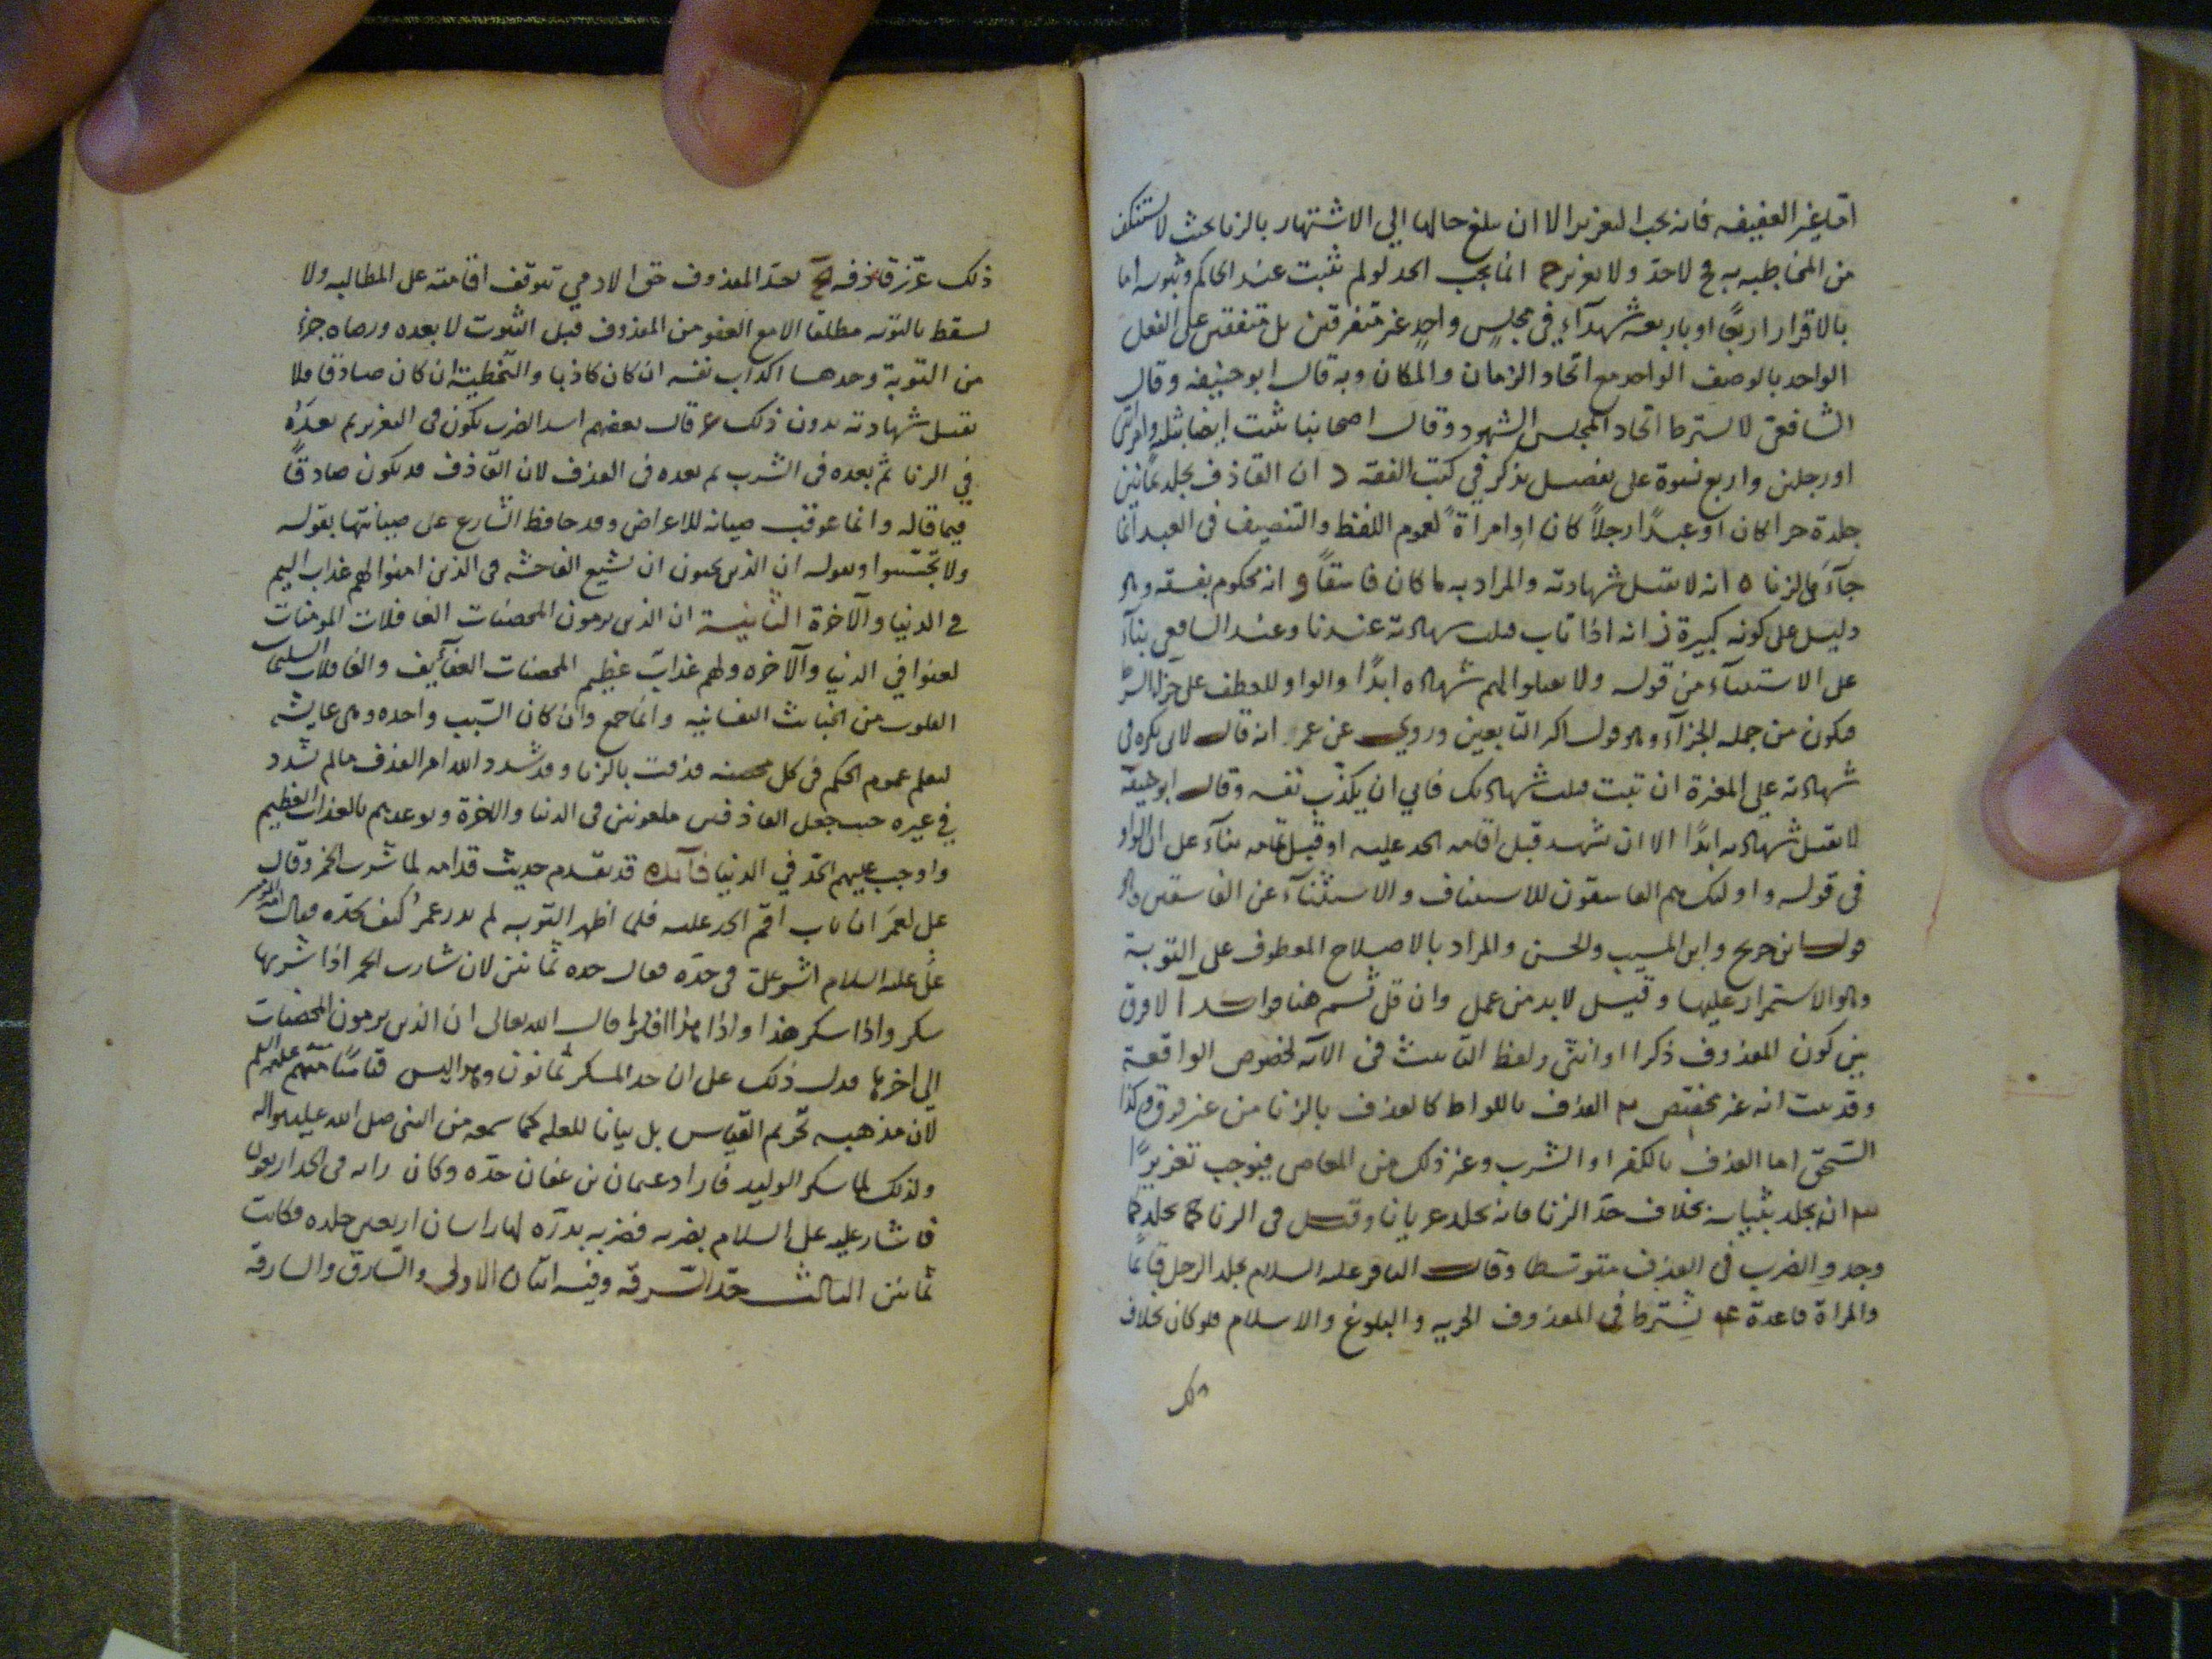 اما غير العفيفه فانه يجب التعزير الا ان يبلغ حالها الي الاشتهار بالزنا بحيث لا يستنكف
من المخاطبه به فح لا حد ولا تعزير ج انما يجب الحد لو لم يثبت عند الحاكم وثبوته اما
بالاقرار اربعًا او باربعه شهدآء في مجلسٍ واحدٍ غير متفرقين بل متفقين على الفعل
الواحد بالوصف الواحد مع اتحاد الزمان والمكان وبه قال ابو حنيفه وقال
الشافعي لا يشترط اتحاد المجلس الشهود وقال اصحابنا يثبت ايضا بثلثه وامراتين
او رجلين واربع نسوة على تفصيل يذكر في كتب الفقه د ان القاذف يجلد ثمانين
جلدة حرا كان او عبدًا رجلاً كان او امراة لعموم اللفظ والتنصيف في العبد انما
جآء في الزنا ه انه لا تقبل شهادته والمراد به ما كان فاسقاً و انه محكوم بفسقه وهو
دليل على كونه كبيرة ز انه اذا تاب قبلت شهادته عندنا وعند الشافعي بنآء
على الاستثنآء من قوله ولا تقبلوا لهم شهاده ابدًا والواو للعطف على جزاء الشرط
فيكون من جمله الجزآء وهو قول اكثر التابعين وروي عن عمر انه قال لابي بكره في
شهادته على المغيرة ان تبت قبلت شهادتك فابي ان يكذب نفسه وقال ابو حنيفة
لا تقبل شهادته ابدًا الا ان شهد قبل اقامه الحد عليه او قبل تمامه بنآء على ان الواو
في قوله واولئك هم الفاسقون للاستيناف والاستثنآء عن الفاسقين وهو
قول ابن جريح وابن المسيب والحسن والمراد بالاصلاح المعطوف على التوبة
وهو الاستمرار عليها وقيل لا بد من عمل وان قل ثم هنا فوايد آ لا فرق
بين كون المقذوف ذكرا او انثى ولفظ التانيث في الآيه لخصوص الواقعة
وقد بينت انه غير مختص ب القذف باللواط كالقذف بالزنا من غير فرق وكذا
السحق اما القذف بالكفر او الشرب وغير ذلك من المعاصي فيوجب تعزيرًا
انه يجلد بثيابه بخلاف حد الزنا فانه يجلد عريانا وقيل في الزنا كما يجلد كما
وجد والضرب في القذف متوسطا وقال الباقر عليه السلام يجلد الرجل قائمًا
والمراة قاعدة يشترط في المقذوف الحريه والبلوغ والاسلام فلو كان بخلاف
ذلك
ذلك عزر قاذفه حد المقذوف حق الادمي تتوقف اقامته على المطالبه ولا
يسقط بالتوبه مطلقا الا مع العفو من المقذوف قبل الثبوت لا بعده ورضاه جزء
من التوبة وحدها اكذاب نفسه ان كان كاذبا والتخطية ان كان صادقا فلا
تقبل شهادته بدون ذلك قال بعضهم اشد الضرب يكون في التعزير ثم بعدَه
في الزنا ثم بعده في الشرب ثم بعده في القذف لان القاذف قد يكون صادقًا
فيما قاله وانما عوقب صيانه للاعراض وقد حافظ الشارع على صيانتها بقوله
ولا تجسسوا وبقوله ان الذين يحبون ان تشيع الفاحشه في الذين امنوا لهم عذاب اليم
في الدنيا والآخرة الثانية ان الذين يرمون المحصنات الغافلات المومنات
لعنوا في الدنيا والآخره ولهم عذاب عظيم المحصنات العفآئيف والغافلات السليمات
القلوب من الخبائث النفسانيه وانما جمع وان كان السبب واحده وهي عايشه
ليعلم عموم الحكم في كل محصنه قذفت بالزنا وقد شدد الله امر القذف ما لم يشدد
في غيره حيث جعل القاذفين ملعونين في الدنيا والاخرة وتوعدهم بالعذاب العظيم
واوجب عليهم الحد في الدنيا فائدة قد تقدم حديث قدامه لما شرب الخمر وقال
علي لعمرَ ان تاب اقم الحد عليه فلما اظهر التوبه لم يدر عمرُ كيف يحده فقال امير المومنين
عليٌ عليه السلام اشر علي في حده فقال حده ثمانين لان شارب الخمر اذا شربها
سكر واذا سكر هذا واذا هذا افترا قال الله تعالى ان الذين يرمون المحصنات
الى اخرها فدل ذلك على ان حد المسكر ثمانون وهو ليس قياسًا منهم عليهم السلم
لان مذهبه تحريم القياس بل بيانا للعله كما سمعه من النبي صلى الله عليه واله
ولذلك لما سكر الوليد فاراد عثمان بن عفان حده وكان رايه في الحد اربعون
فاشار عليه علي السلام بضربه فضربه بدره لها راسان اربعين جلده فكانت
ثمانين الثالث حد السرقه وفيه ايتان الاولى والسارق والسارقه